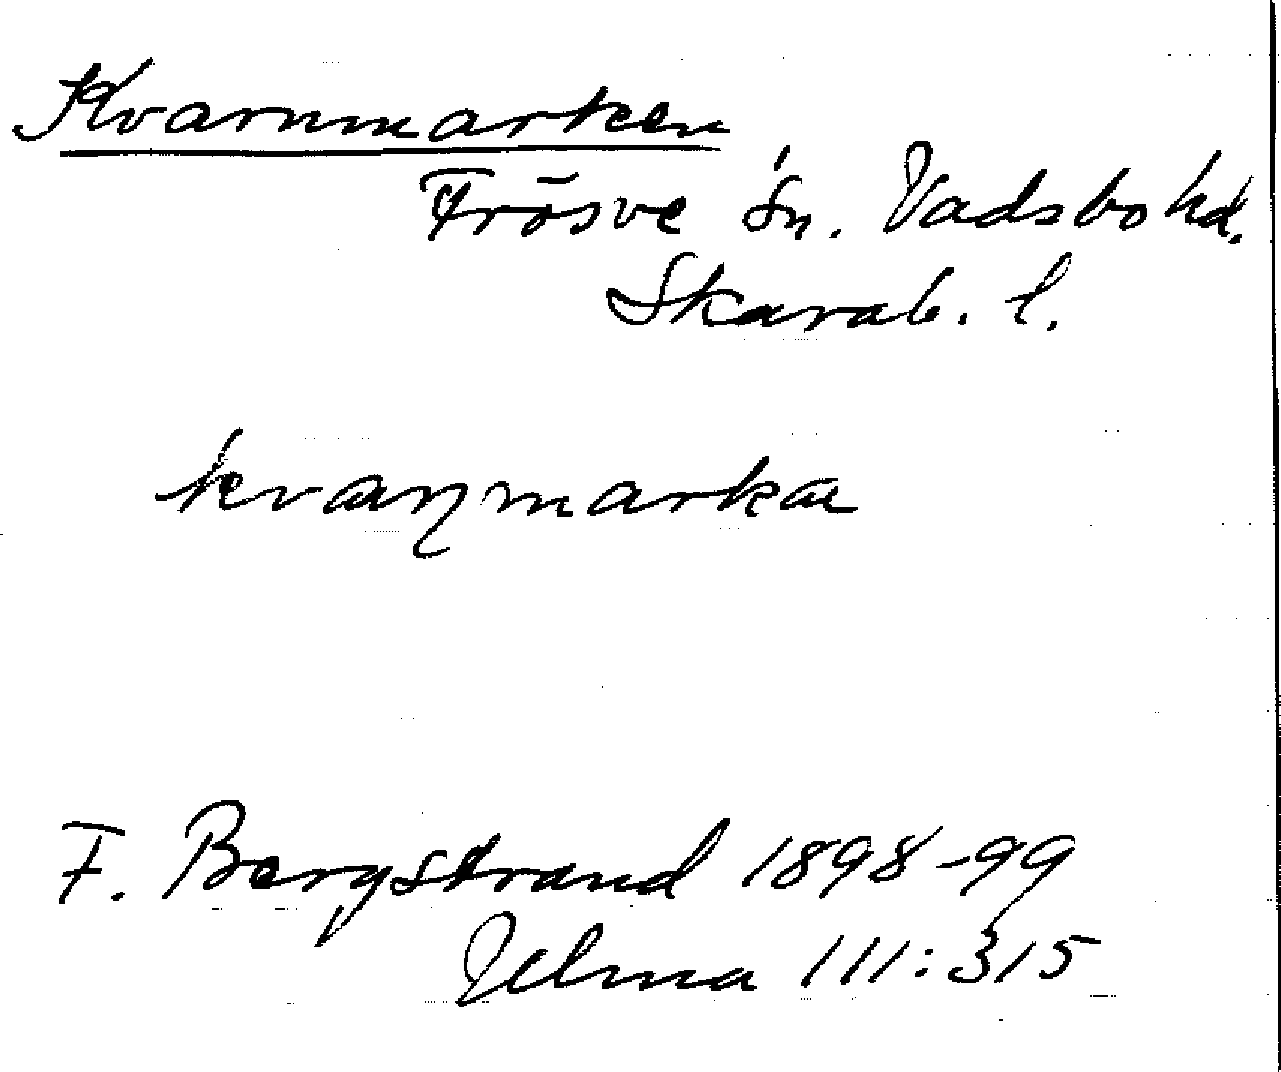 Kvarnmarken
Frösve sn. Vadsbo hd.
Skarab. l.
kvaɳmarka
F. Bergstrand 1898-99
111:315